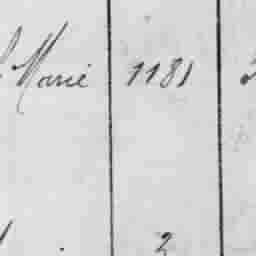 Marie 1181
2